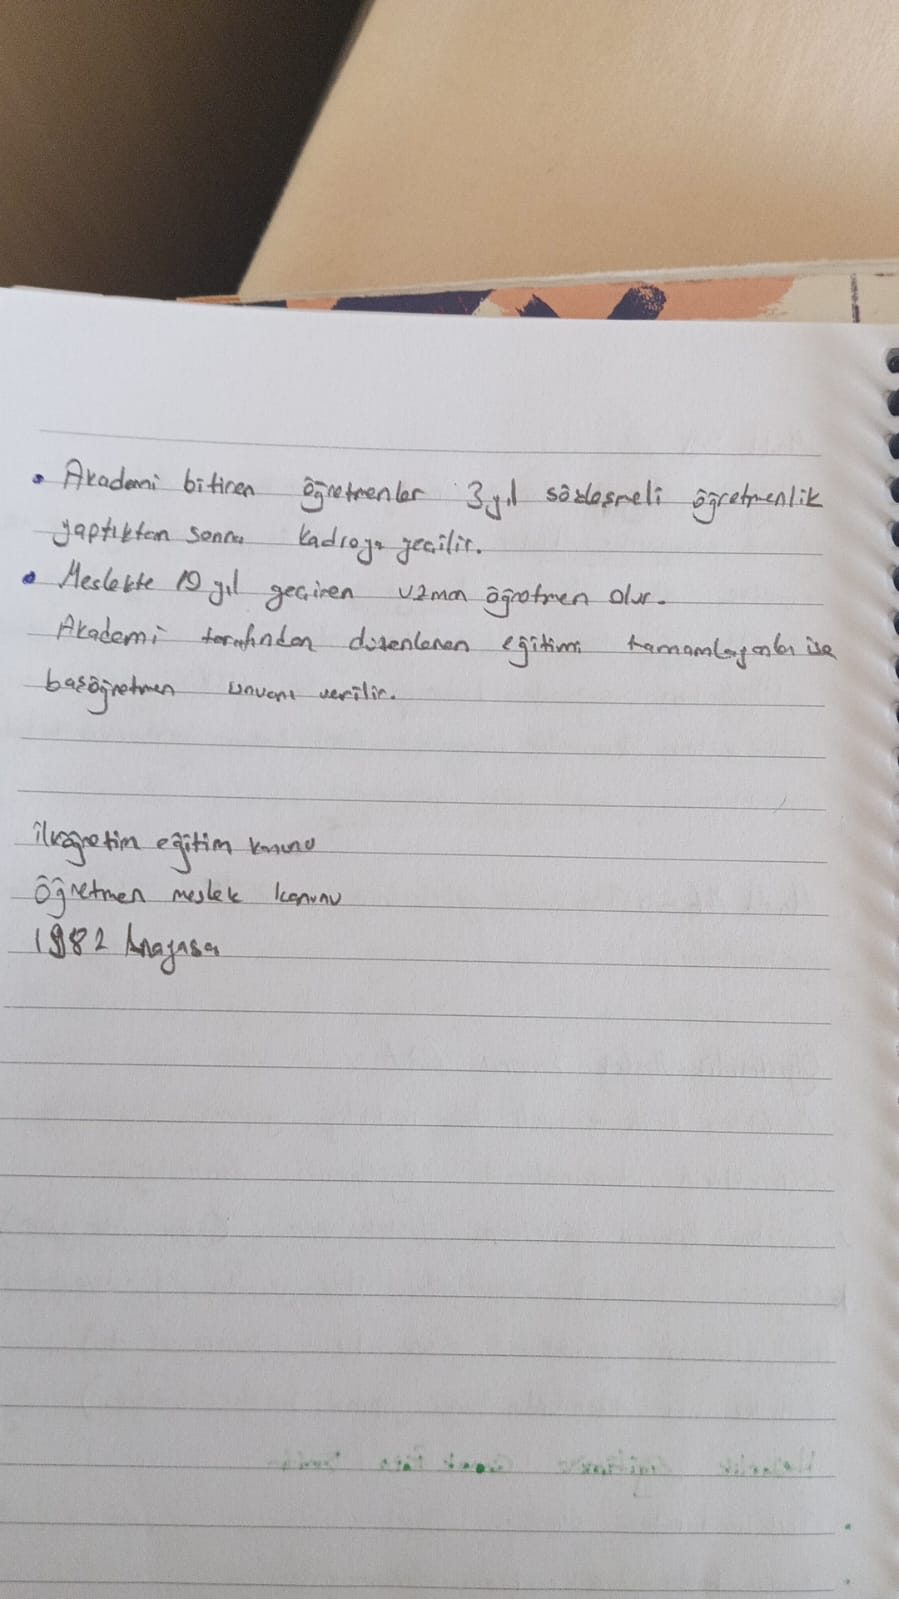 • Akademi bitiren öğretmenler 3 yıl sözleşmeli öğretmenlik
yaptıktan sonra kadroya geçilir.
• Meslekte 10 yıl geçiren uzman öğretmen olur.
Akademi tarafından düzenlenen eğitimi tamamlayanlar ise
başöğretmen unvanı verilir.
ilköğretim eğitim kanunu
Öğretmen meslek kanunu
1982 Anayasa